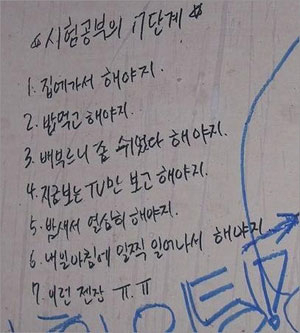 ☆시험공부의 7단계☆
1. 집에가서 해야지.
2. 밥먹고 해야지.
3. 배부르니 좀 쉬었다 해야지.
4. 지금보는 TV만 보고 해야지.
5. 밤새서 열심히 해야지.
6. 내일아침에 일찍 일어나서 해야지
7. 이런 젠장 ㅠ.ㅠ